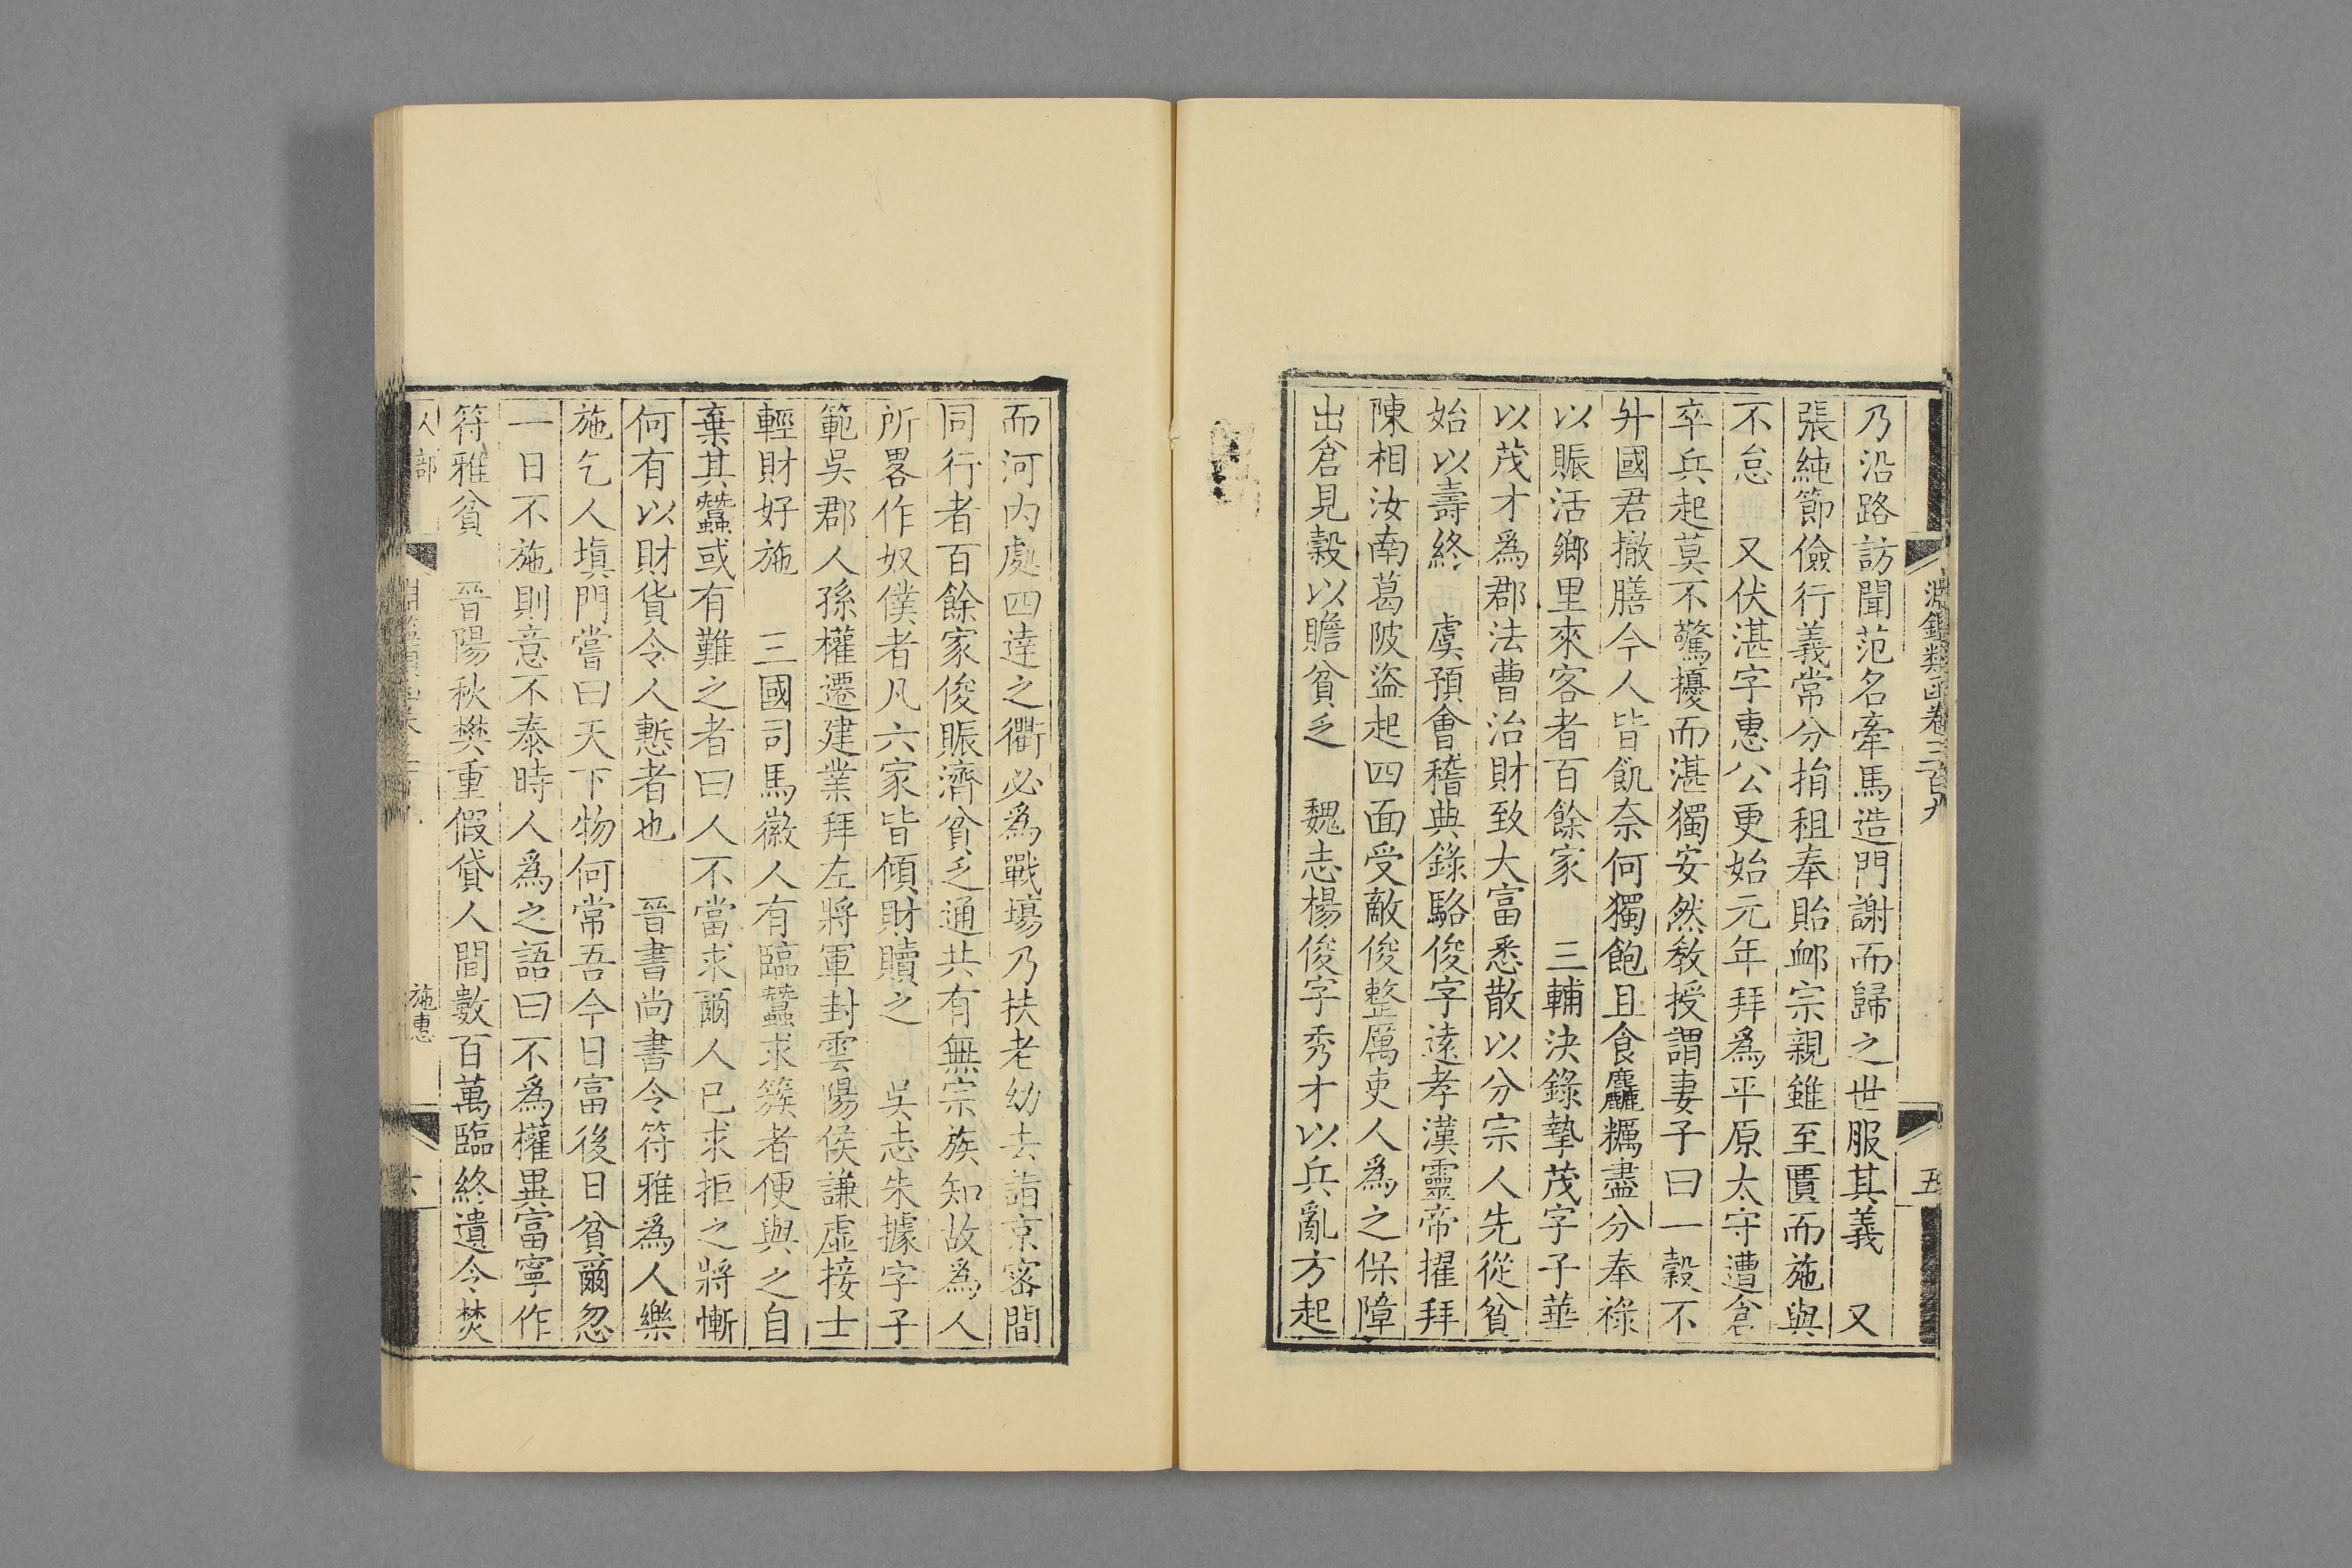 淵鑑類函卷三百九
五
乃沿路訪聞范名牽馬造門謝而歸之世服其義　又
張純節儉行義常分損租奉貽卹宗親雖至匱而施與
不怠　又伏湛字惠公更始元年拜為平原太守遭倉
卒兵起莫不驚擾而湛獨安然教授謂妻子曰一穀不
升國君撤膳今人皆飢奈何獨飽且食麤糲盡分奉祿
以賑活鄉里來客者百餘家　三輔決錄摯茂字子華
以茂才為郡法曹治財致大富悉散以分宗人先從貧
始以壽終　虞預會稽典錄駱俊字遠孝漢靈帝擢拜
陳相汝南葛陂盜起四面受敵俊整厲吏人為之保障
出倉見穀以贍貧乏　魏志楊俊字秀才以兵亂方起
而河內處四達之衢必為戰場乃扶老幼去詣京密間
同行者百餘家俊賑濟貧乏通共有無宗族知故為人
所畧作奴僕者凡六家皆傾財贖之　吳志朱據字子
範吳郡人孫權遷建業拜左將軍封雲陽侯謙虛接士
輕財好施　三國司馬徽人有臨蠶求簇者便與之自
棄其蠶或有難之者曰人不當求爾人已求拒之將慚
何有以財貨令人慙者也　晉書尚書令符雅為人樂
施乞人塡門嘗曰天下物何常吾今日富後日貧爾忽
一日不施則意不泰時人為之語曰不為權異富寧作
符雅貧　晉陽秋樊重假貸人間數百萬臨終遺令焚
人部
施惠
六